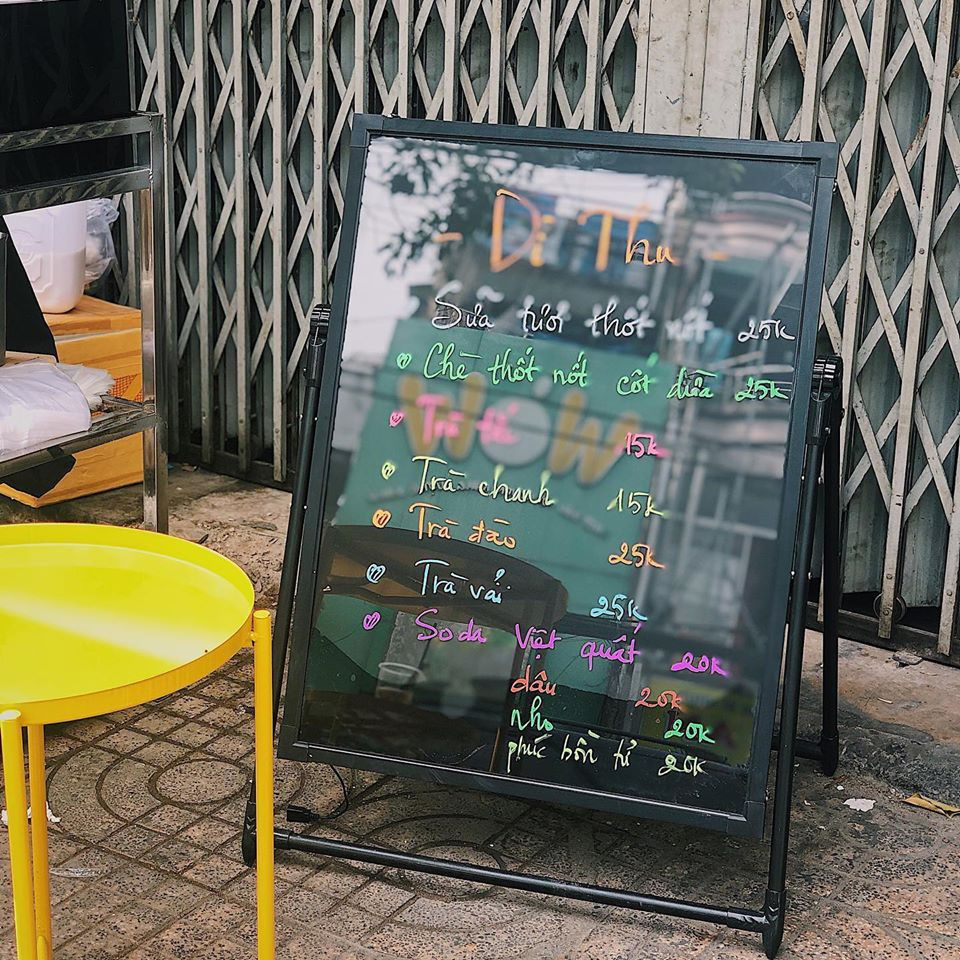 - Dì Thu -
Sữa tươi thốt nốt 25k
Chè thốt nốt cốt dừa 25k
Trà tắc 15k
Trà chanh 15k
Trà đào 25k
Trà vải 25k
Soda Việt quất 20k
dâu 20k
nho 20k
phúc bồn tử 20k
WOW